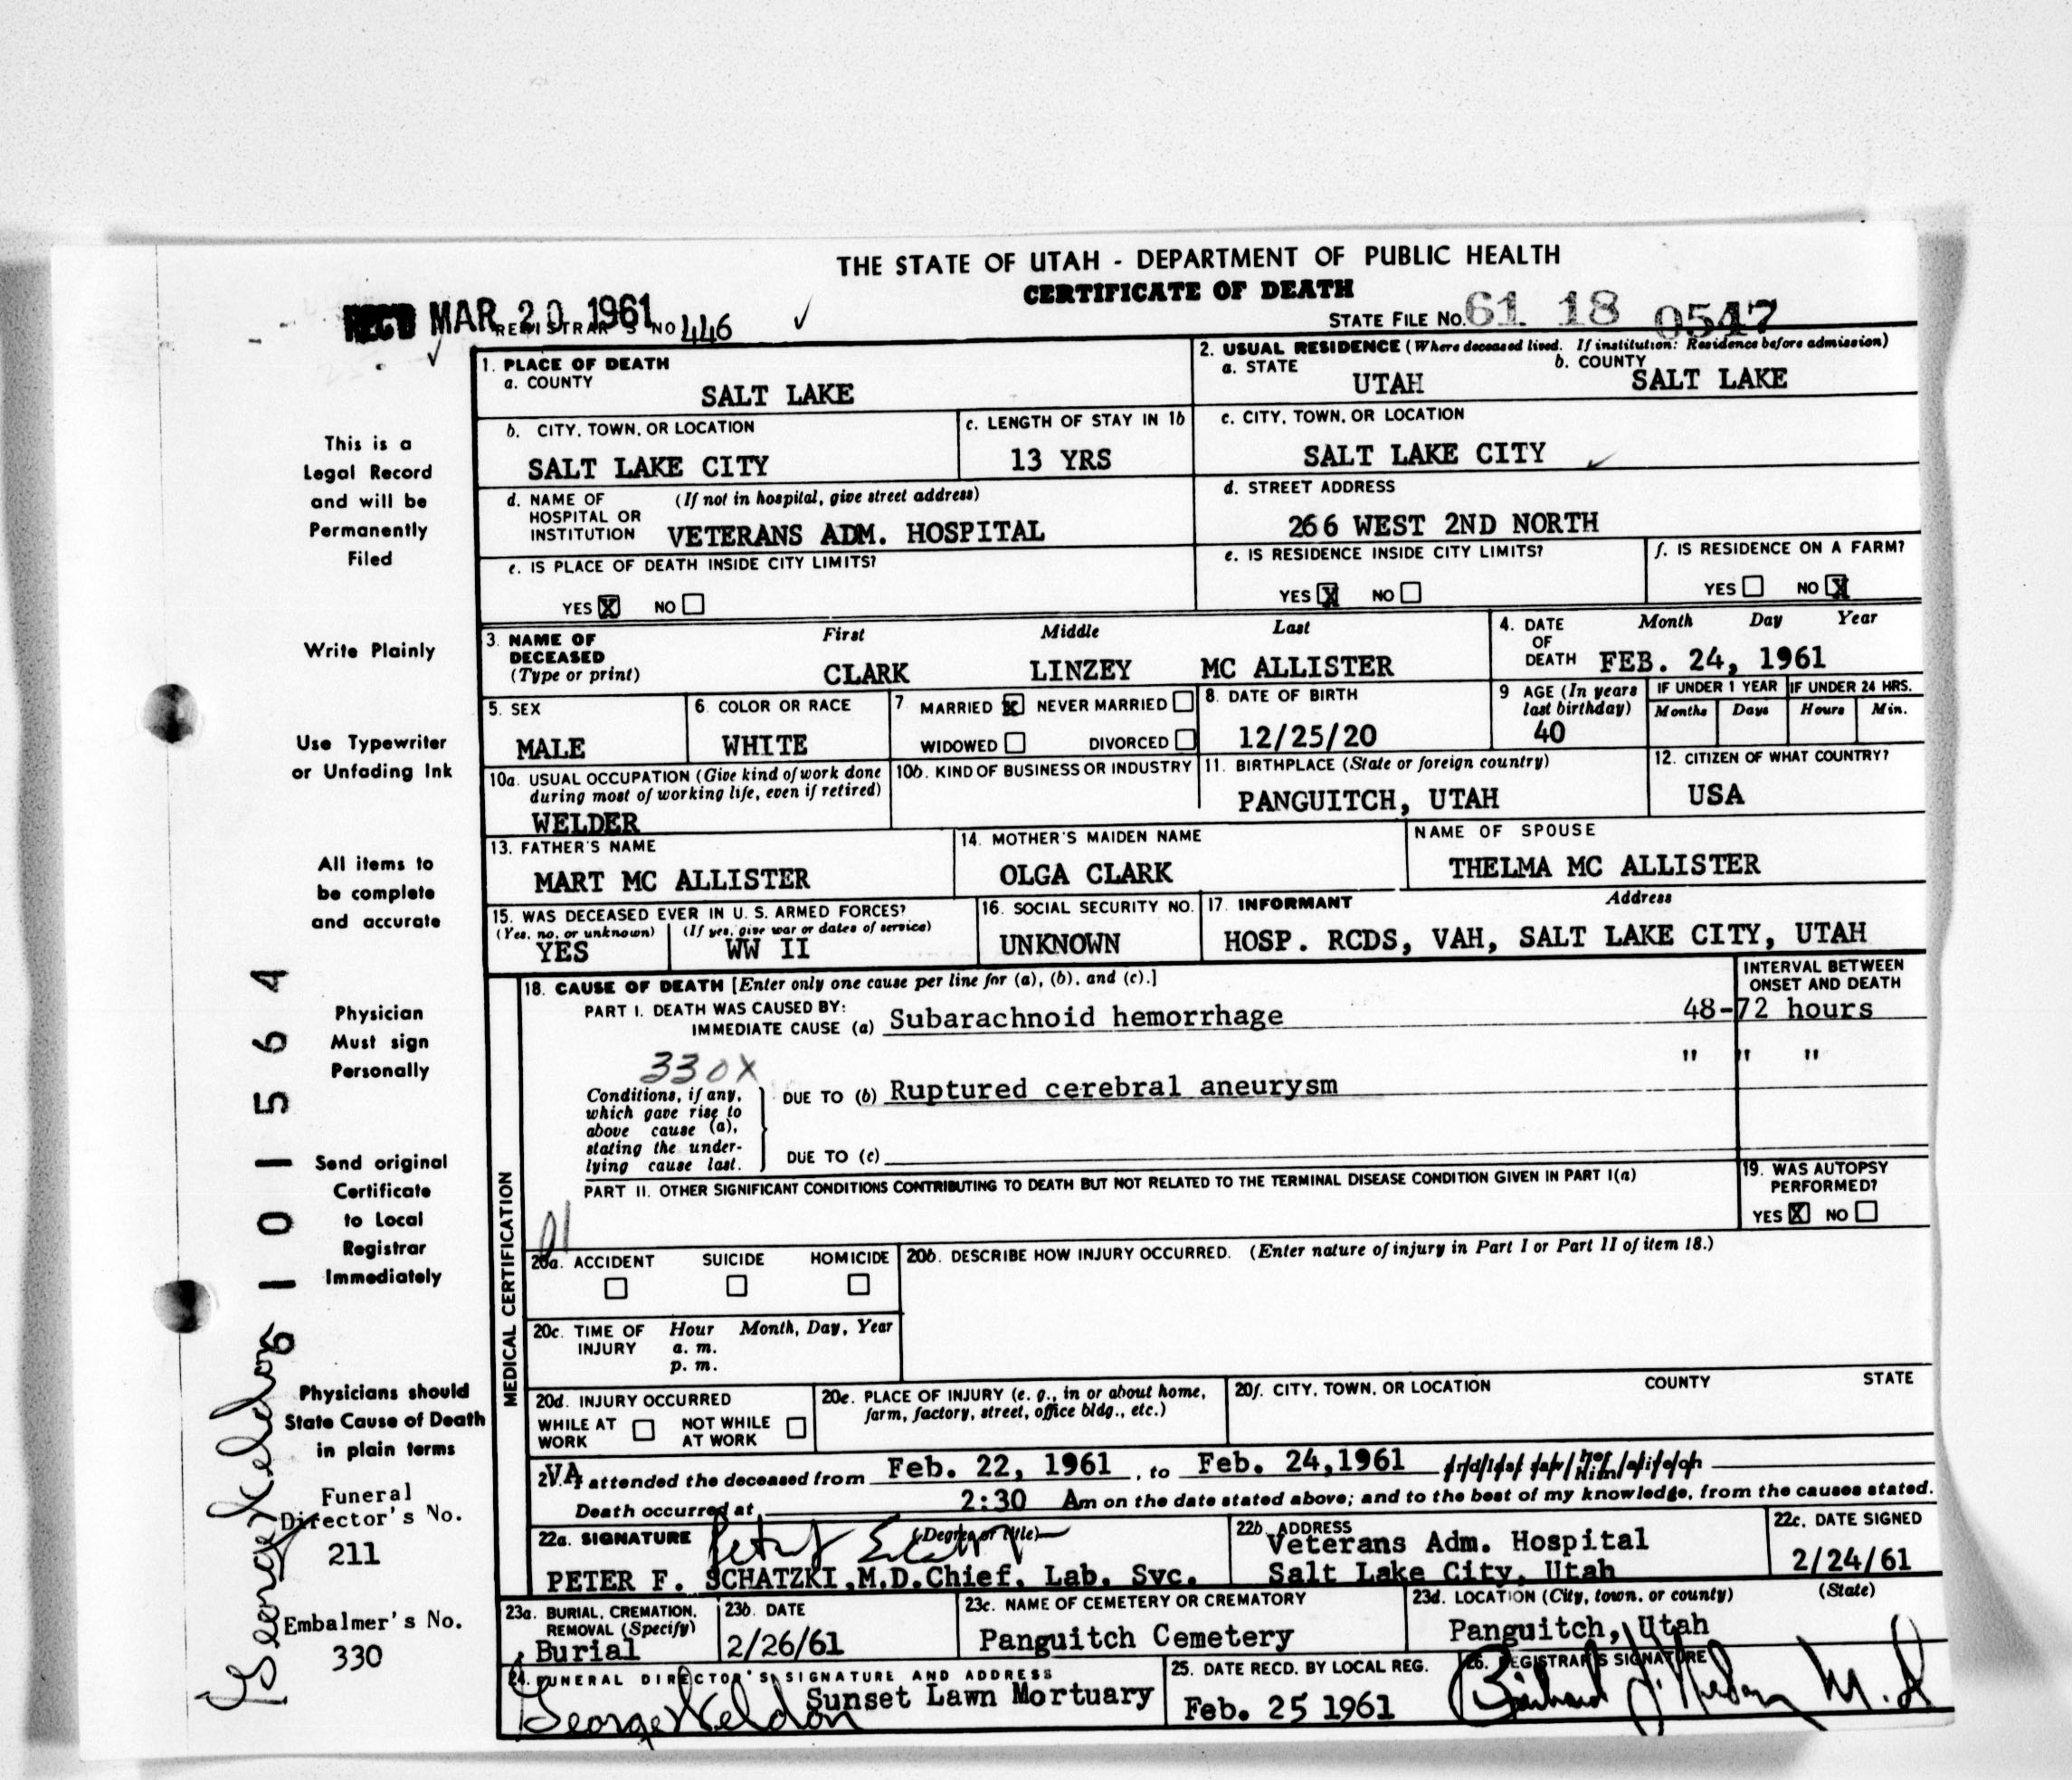 THE STATE OF UTAH - DEPARTMENT OF PUBLIC HEALTH
CERTIFICATE OF DEATH
REC'D MAR 20 1961
REGISTRAR'S NO 446
STATE FILE NO. 61 18 0547
1. PLACE OF DEATH
a. COUNTY
SALT LAKE
2. USUAL RESIDENCE (Where deceased lived. If institution: Residence before admission)
a. STATE
UTAH
b. COUNTY
SALT LAKE
b. CITY, TOWN, OR LOCATION
SALT LAKE CITY
c. LENGTH OF STAY IN 1b
13 YRS
c. CITY, TOWN, OR LOCATION
SALT LAKE CITY
d. NAME OF HOSPITAL OR INSTITUTION
(If not in hospital, give street address)
VETERANS ADM. HOSPITAL
d. STREET ADDRESS
266 WEST 2ND NORTH
e. IS PLACE OF DEATH INSIDE CITY LIMITS?
YES X NO
e. IS RESIDENCE INSIDE CITY LIMITS?
YES X NO
f. IS RESIDENCE ON A FARM?
YES NO X
3. NAME OF DECEASED
(Type or print)
First Middle Last
CLARK LINZEY MC ALLISTER
4. DATE OF DEATH
Month Day Year
FEB. 24, 1961
5. SEX
MALE
6. COLOR OR RACE
WHITE
7. MARRIED X NEVER MARRIED
WIDOWED DIVORCED
8. DATE OF BIRTH
12/25/20
9 AGE (In years last birthday)
40
IF UNDER 1 YEAR
Months Days
IF UNDER 24 HRS.
Hours Min.
10a. USUAL OCCUPATION (Give kind of work done during most of working life, even if retired)
WELDER
10b. KIND OF BUSINESS OR INDUSTRY
11. BIRTHPLACE (State or foreign country)
PANGUITCH, UTAH
12. CITIZEN OF WHAT COUNTRY?
USA
13. FATHER'S NAME
MART MC ALLISTER
14. MOTHER'S MAIDEN NAME
OLGA CLARK
NAME OF SPOUSE
THELMA MC ALLISTER
15. WAS DECEASED EVER IN U. S. ARMED FORCES?
(Yes, no, or unknown) (If yes, give war or dates of service)
YES WW II
16. SOCIAL SECURITY NO.
UNKNOWN
17. INFORMANT Address
HOSP. RCDS, VAH, SALT LAKE CITY, UTAH
MEDICAL CERTIFICATION
18. CAUSE OF DEATH [Enter only one cause per line for (a), (b), and (c).]
INTERVAL BETWEEN ONSET AND DEATH
PART I. DEATH WAS CAUSED BY:
IMMEDIATE CAUSE (a) Subarachnoid hemorrhage 48-72 hours
330X
" " "
Conditions, if any, which gave rise to above cause (a), stating the underlying cause last.
DUE TO (b) Ruptured cerebral aneurysm
DUE TO (c)
PART II. OTHER SIGNIFICANT CONDITIONS CONTRIBUTING TO DEATH BUT NOT RELATED TO THE TERMINAL DISEASE CONDITION GIVEN IN PART I(a)
19. WAS AUTOPSY PERFORMED?
YES X NO
20a. ACCIDENT SUICIDE HOMICIDE
20b. DESCRIBE HOW INJURY OCCURRED. (Enter nature of injury in Part I or Part II of item 18.)
20c. TIME OF INJURY
Hour Month, Day, Year
a. m.
p. m.
20d. INJURY OCCURRED
WHILE AT WORK NOT WHILE AT WORK
20e. PLACE OF INJURY (e. g., in or about home, farm, factory, street, office bldg., etc.)
20f. CITY, TOWN, OR LOCATION COUNTY STATE
VA attended the deceased from Feb. 22, 1961, to Feb. 24,1961
Death occurred at 2:30 Am on the date stated above; and to the best of my knowledge, from the causes stated.
22a. SIGNATURE (Degree or title)
PETER F. SCHATZKI,M.D.Chief, Lab. Svc.
22b ADDRESS
Veterans Adm. Hospital
Salt Lake City, Utah
22c. DATE SIGNED
2/24/61
23a. BURIAL, CREMATION, REMOVAL (Specify)
Burial
23b. DATE
2/26/61
23c. NAME OF CEMETERY OR CREMATORY
Panguitch Cemetery
23d. LOCATION (City, town, or county) (State)
Panguitch, Utah
24. FUNERAL DIRECTOR'S SIGNATURE AND ADDRESS
George Keldon Sunset Lawn Mortuary
25. DATE RECD. BY LOCAL REG.
Feb. 25 1961
26. REGISTRAR'S SIGNATURE
M.D
This is a
Legal Record
and will be
Permanently
Filed
Write Plainly
Use Typewriter
or Unfading Ink
All items to
be complete
and accurate
Physician
Must sign
Personally
Send original
Certificate
to Local
Registrar
Immediately
Physicians should
State Cause of Death
in plain terms
Funeral
Director's No.
211
Embalmer's No.
330
6101564
George Keldon